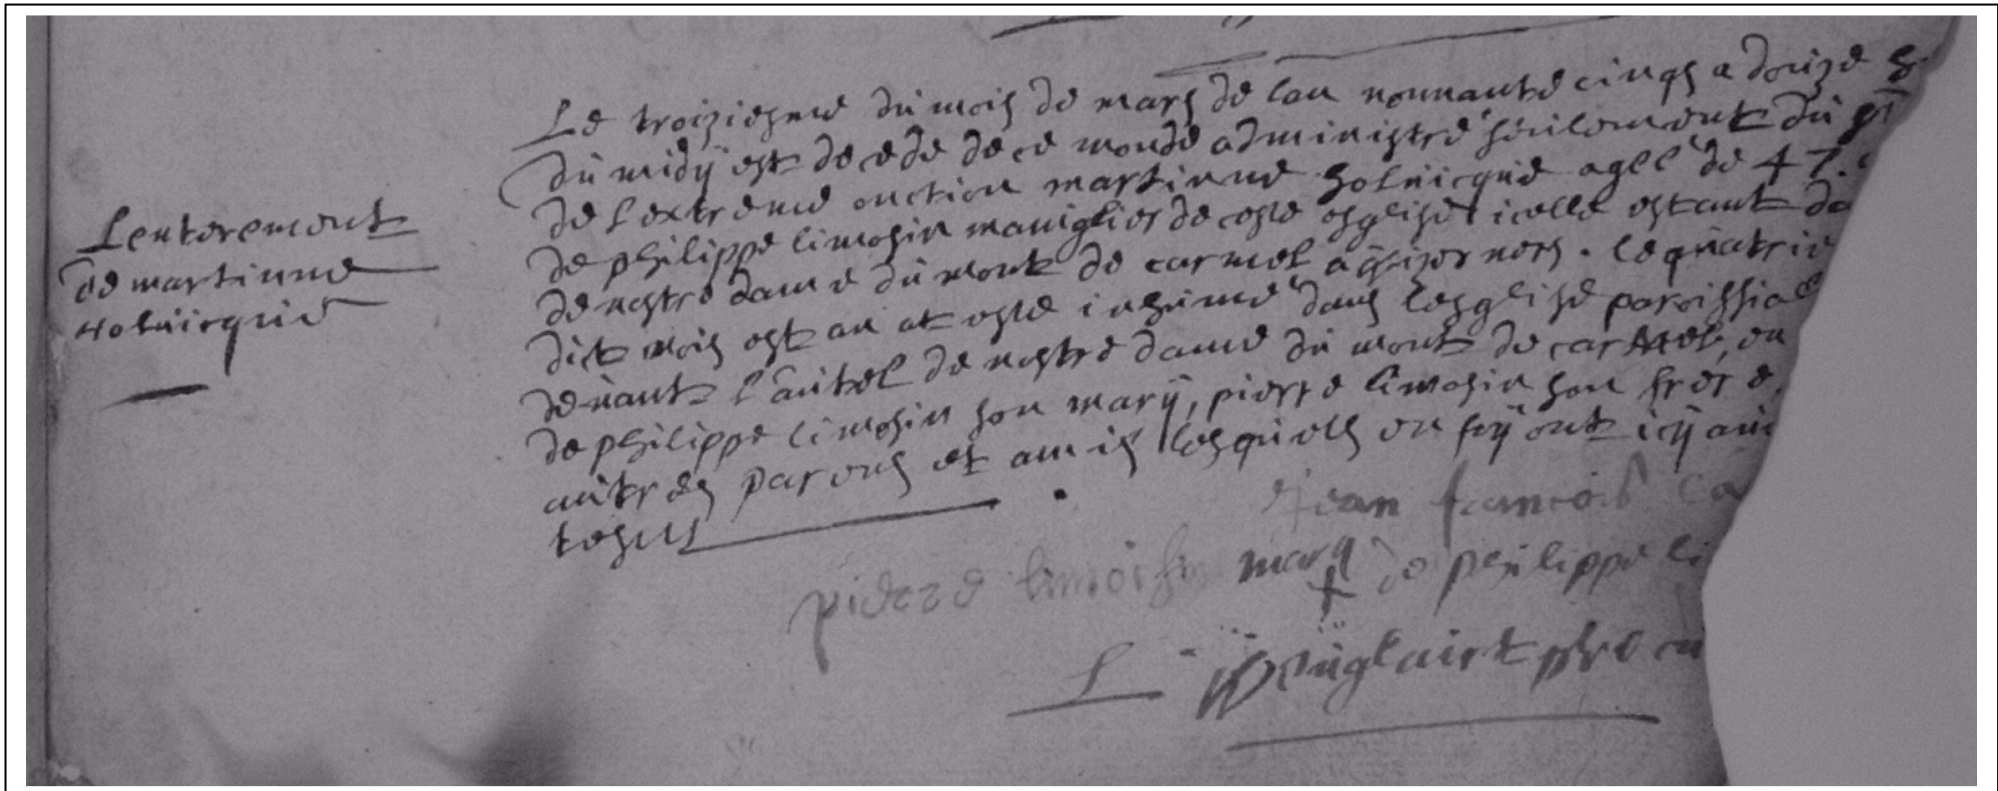 Lenterement
de martinne
holuicque
Le troiziesme du mois de mars de lan nonnante cinqs a douze
du midÿ est decede de ce monde administré seulement du
de lextreme onction martinne holuicque agee de 47
de philippe limosin maniglier de ceste esglise icelle estant
de nostre dame du mont de carmel . le quatrie
dict mois est an at esté inhumé dans lesglise paroissial
deuant lautel de nostre dame du mont de carmel, en
de philippe limosin son marÿ, pierre limosin son frere
autres parens et amis lesquels en foÿ ont icÿ
jean francois
pierre limoisin marq de philippe li
L